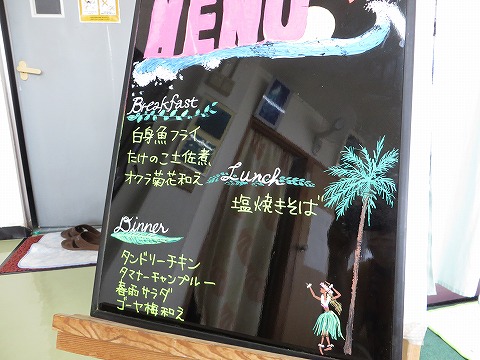 MENU
Breakfast
白身魚フライ
たけのこ土佐煮
オクラ菊花和え
Lunch
塩焼きそば
Dinner
タンドリーチキン
タマナーチャンプルー
春雨サラダ
ゴーヤ梅和え